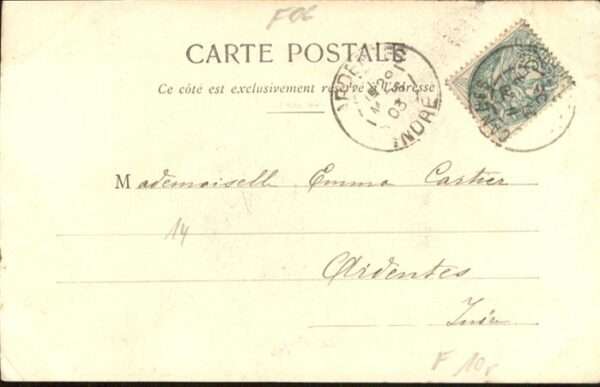 F06
CARTE POSTALE
Ce côté est exclusivement réservé à l'adresse
ARDENTES
03
INDRE
Mademoiselle Emma Cartier
14
Ardentes
Indre
F 10